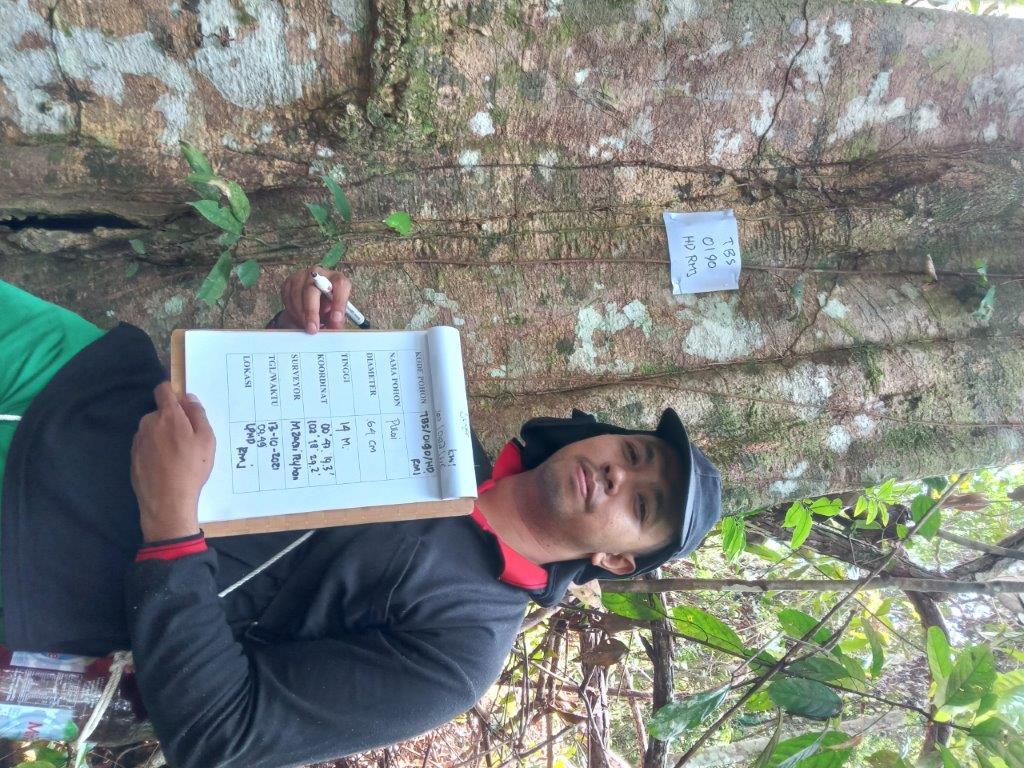 TBS
0190
HD RMJ
KODE POHON TBS/0190/HD/
RMJ
NAMA POHON Pulai
DIAMETER 64 CM
TINGGI 14 M.
KOORDINAT 00° 47' 19.3"
102° 18' 29.2"
SURVEYOR M. Zacri Reyhan
TGL/WAKTU 13-10-2021
09.49
LOKASI LPHD
RMJ